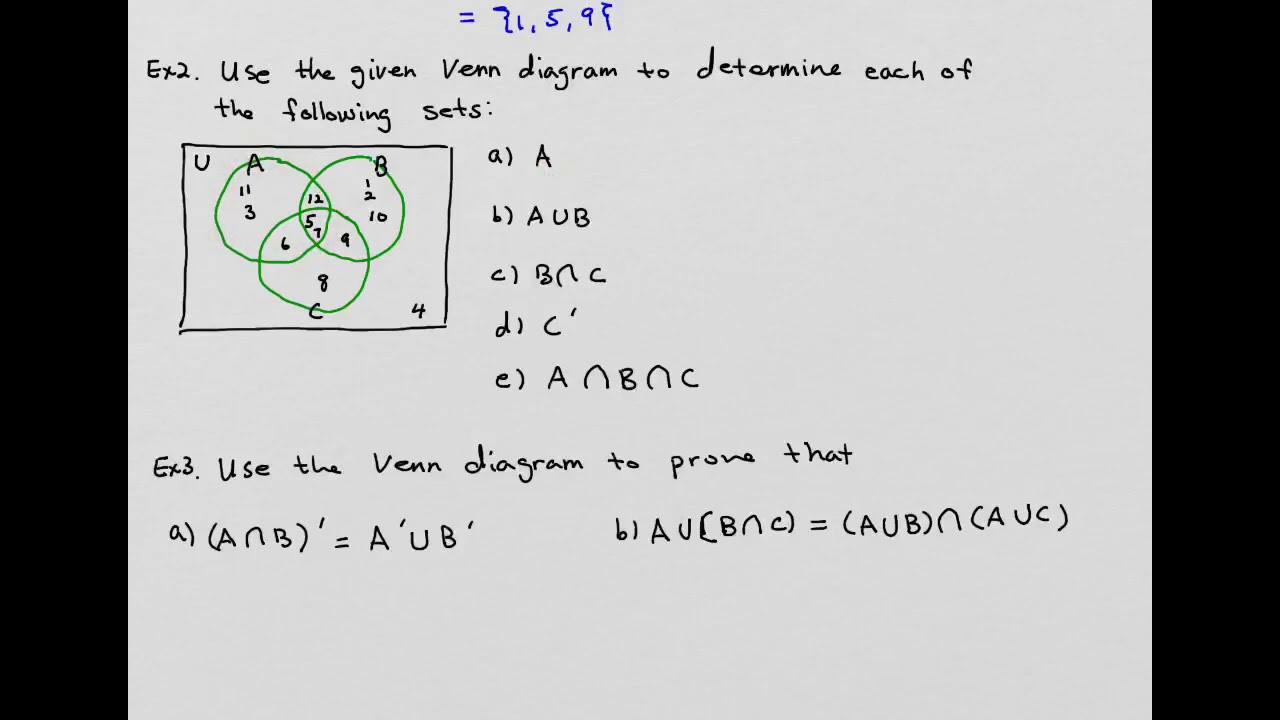 = {1, 5, 9}
Ex2. Use the given Venn diagram to determine each of
the following sets:
U A B
11 3 12 1 2 10
5 7
6 9
8
C 4
a) A
b) A ∪ B
c) B ∩ C
d) C ′
e) A ∩ B ∩ C
Ex3. Use the Venn diagram to prove that
a) (A ∩ B)′ = A′ ∪ B′
b) A ∪ (B ∩ C) = (A ∪ B) ∩ (A ∪ C)